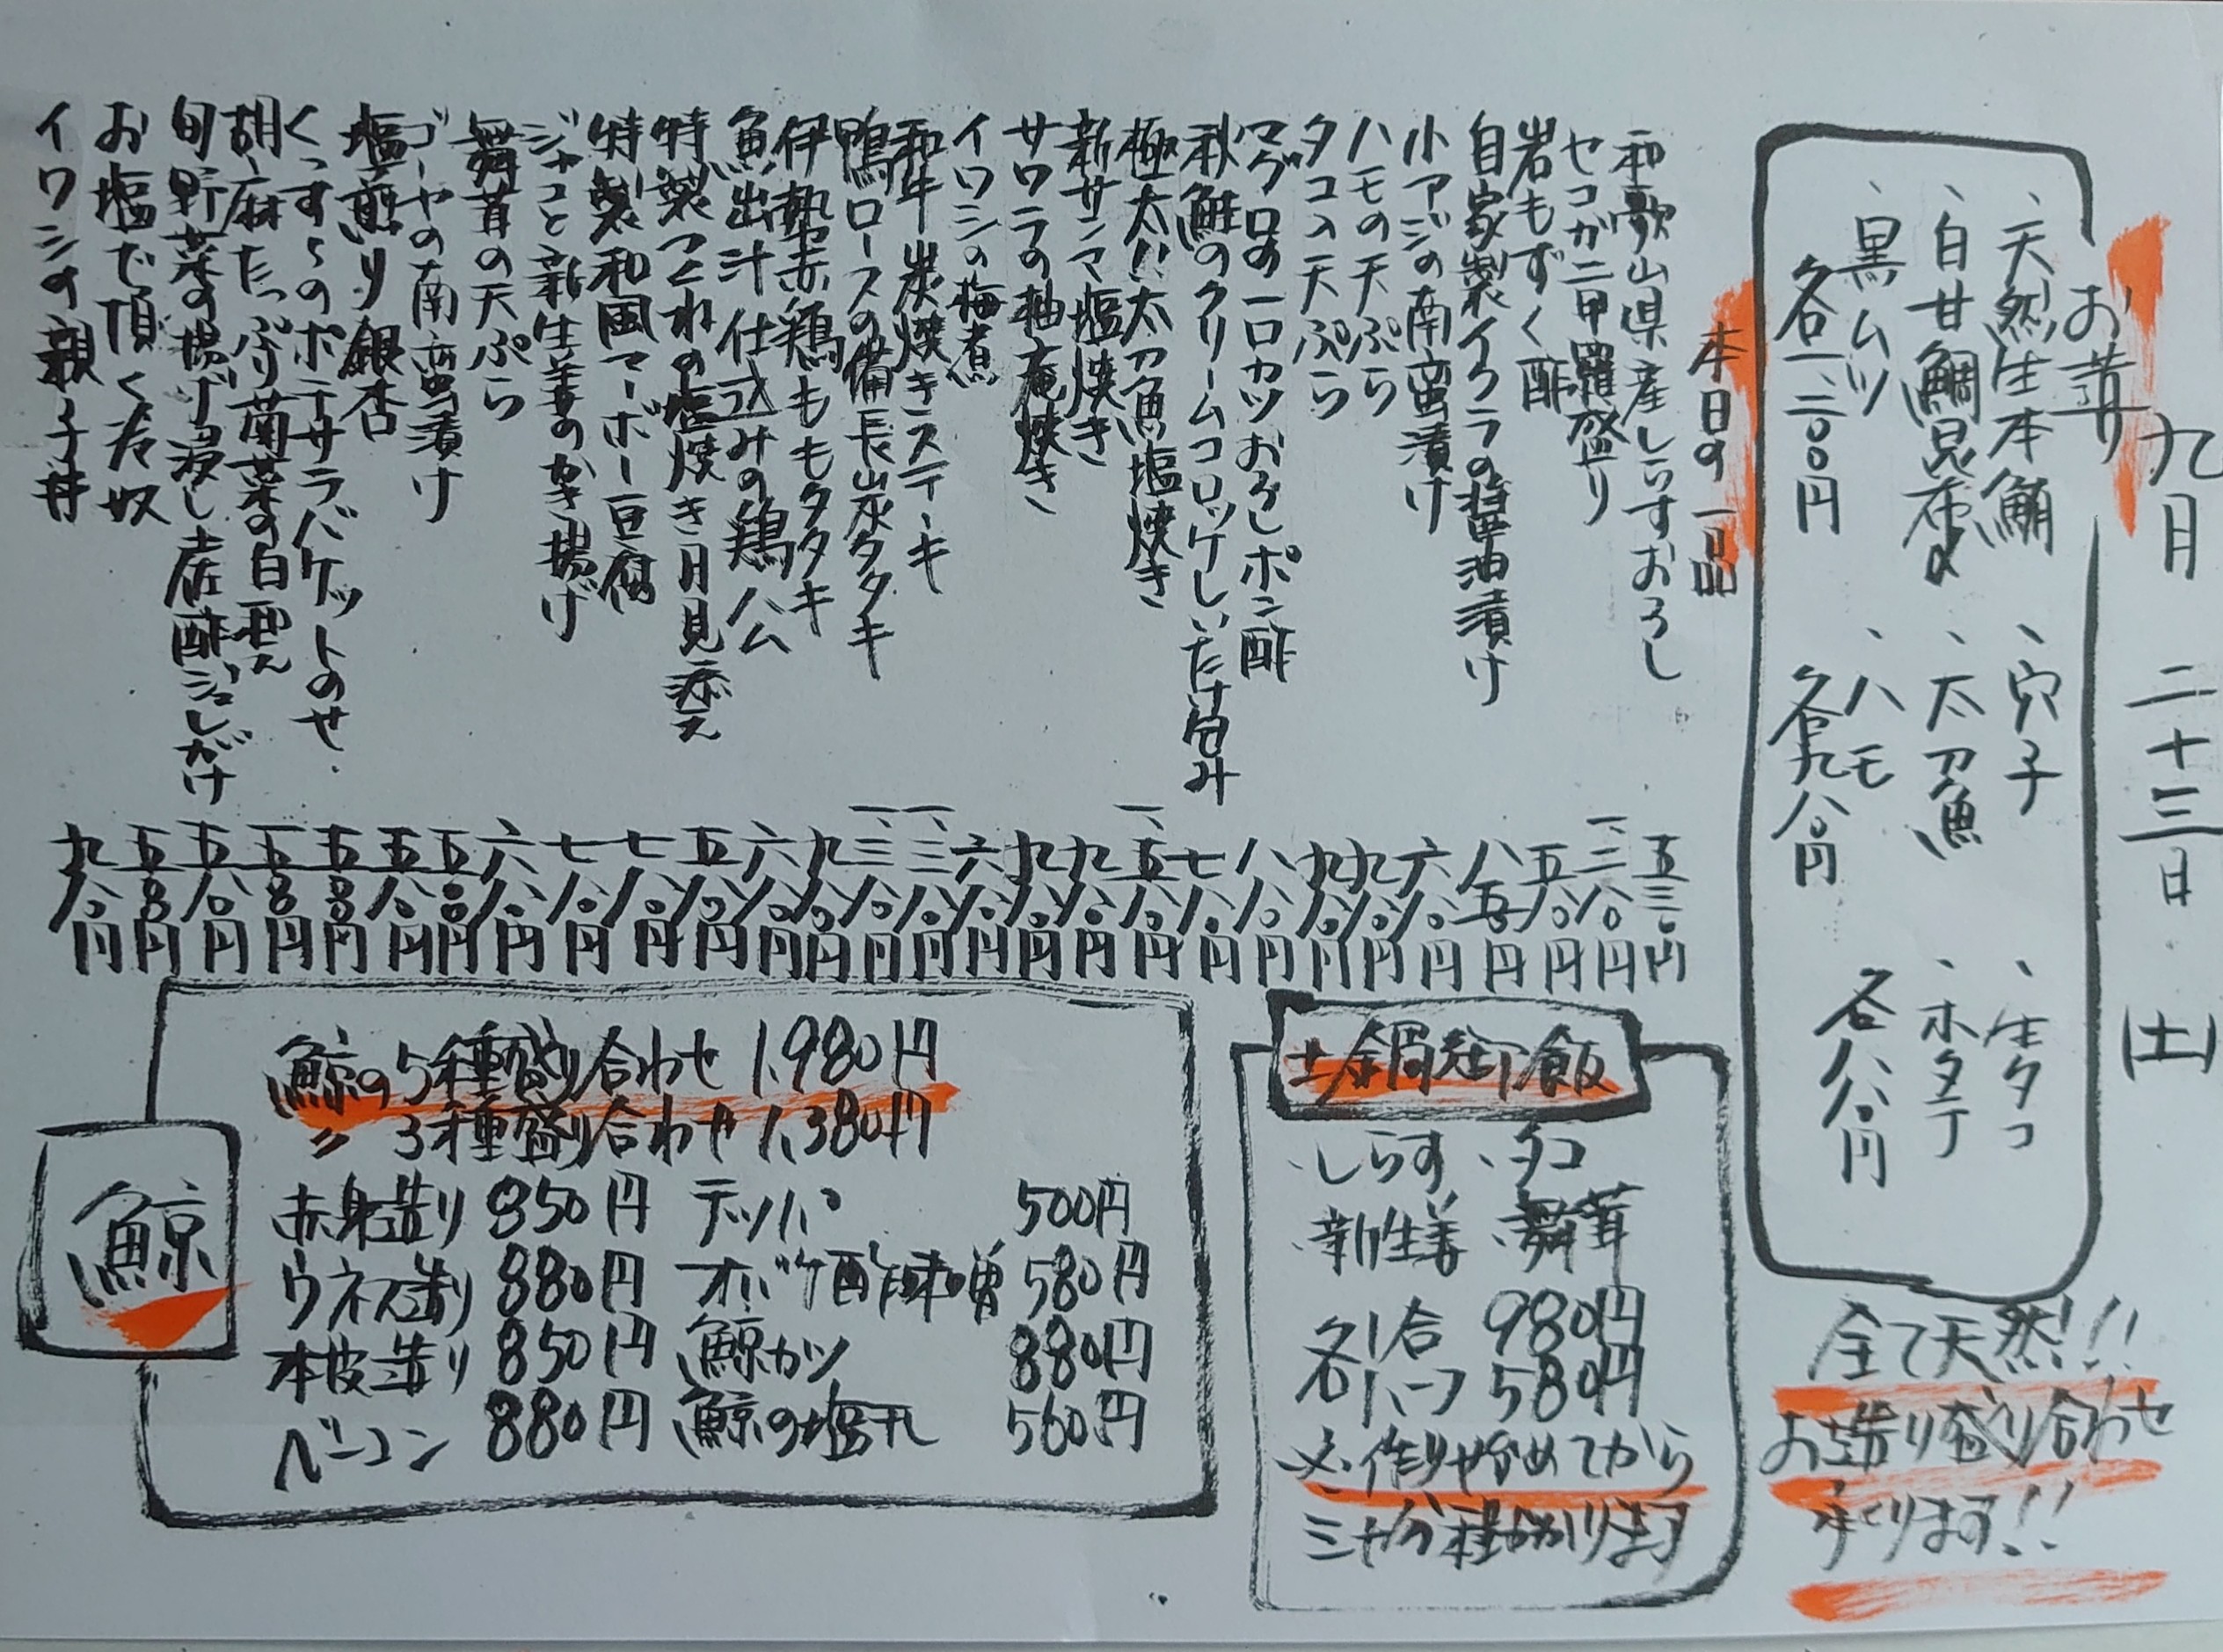 九月 二十三日 (土)
お造り
、天然生本鮪 、穴子 、生タコ
、白甘鯛昆布〆 、太刀魚 、ホタテ
、黒ムツ 、ハモ
各一、二〇〇円 各九八〇円 各八八〇円
全て天然!!
お造り盛り合わせ
承ります!!
本日の一品
和歌山県産しらすおろし 五三〇円
セコガニ甲羅盛り 一、三八〇円
岩もずく酢 五八〇円
自家製イクラの醤油漬け 八五〇円
小アジの南蛮漬け 六八〇円
ハモの天ぷら 九八〇円
タコの天ぷら 九八〇円
マグロの一口カツおろしポン酢 八八〇円
秋鮭のクリームコロッケしいたけ包み 七八〇円
極太!!太刀魚塩焼き 一、五八〇円
新サンマ塩焼き 九八〇円
サワラの柚庵焼き 九八〇円
イワシの梅煮 六八〇円
和牛炭焼きステーキ 一、三八〇円
鴨ロースの備長炭タタキ 一、三八〇円
伊勢赤鶏ももタタキ 九八〇円
魚出汁仕込みの鶏ハム 六八〇円
特製つくねの塩焼き月見添え 五八〇円
特製和風マーボー豆腐 七八〇円
ジャコと新生姜のかき揚げ 七八〇円
舞茸の天ぷら 六八〇円
ゴーヤの南蛮漬け 五〇〇円
塩煎り銀杏 五八〇円
くっすぅのポテサラバケットのせ 五〇〇円
胡麻たっぷり菊菜の白和え 五〇〇円
旬野菜の揚げ浸し土佐酢ジュレがけ 五八〇円
お塩で頂く冷奴 五〇〇円
イワシの親子丼 九八〇円
土鍋御飯
、しらす 、タコ
、新生姜 、舞茸
各1合 980円
各ハーフ 580円
※作りやめてから
三十分程かかります
鯨
鯨の5種盛り合わせ 1,980円
〃 3種盛り合わせ 1,380円
赤身造り 850円 テッパ 500円
ウネス造り 880円 オバケ酢味噌 580円
本皮造り 850円 鯨カツ 880円
ベーコン 880円 鯨の塩干し 560円